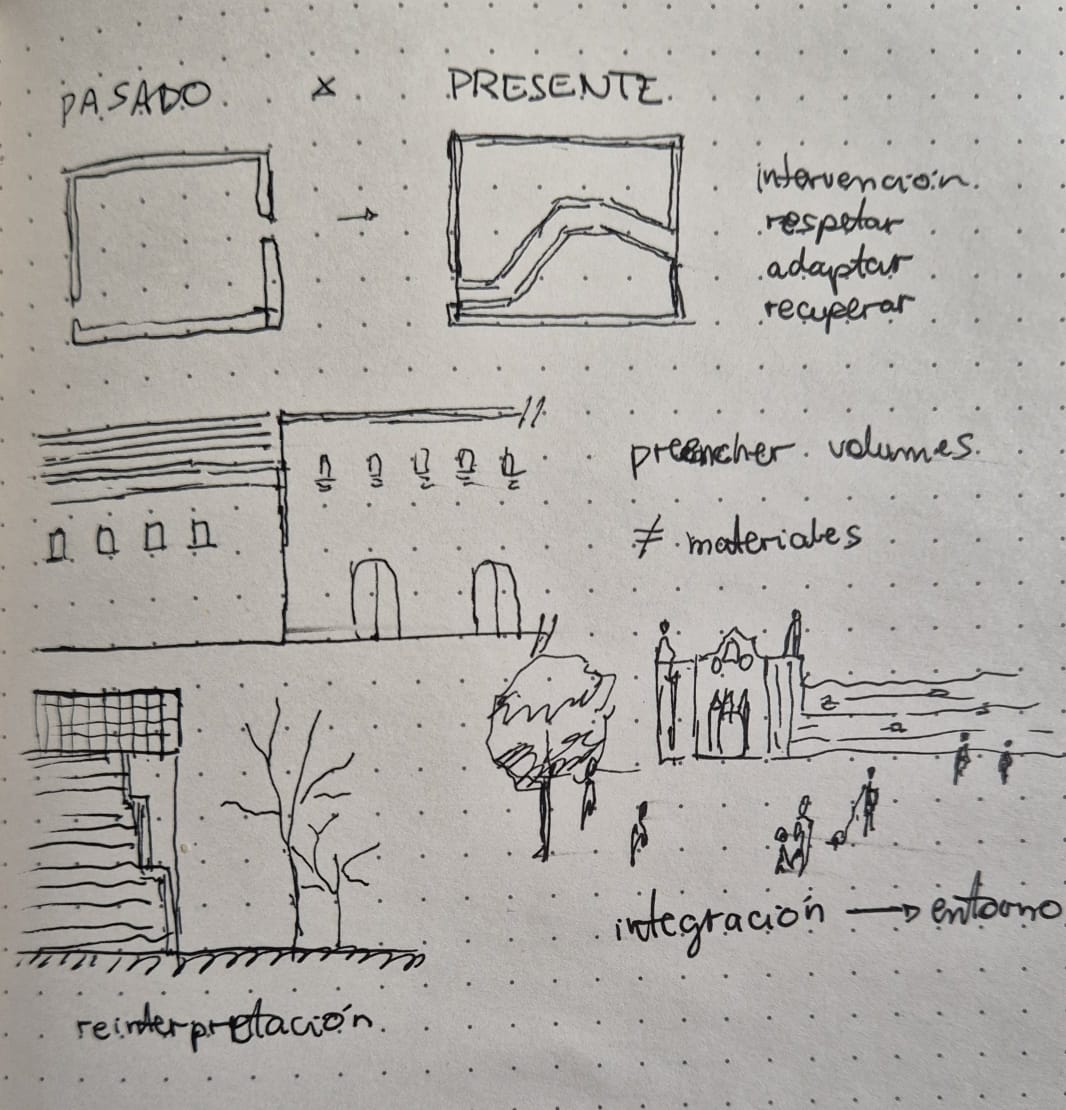 PASADO x PRESENTE
intervención
respetar
adaptar
recuperar
preencher volumes
≠ materiales
integración → entorno
reinterpretación